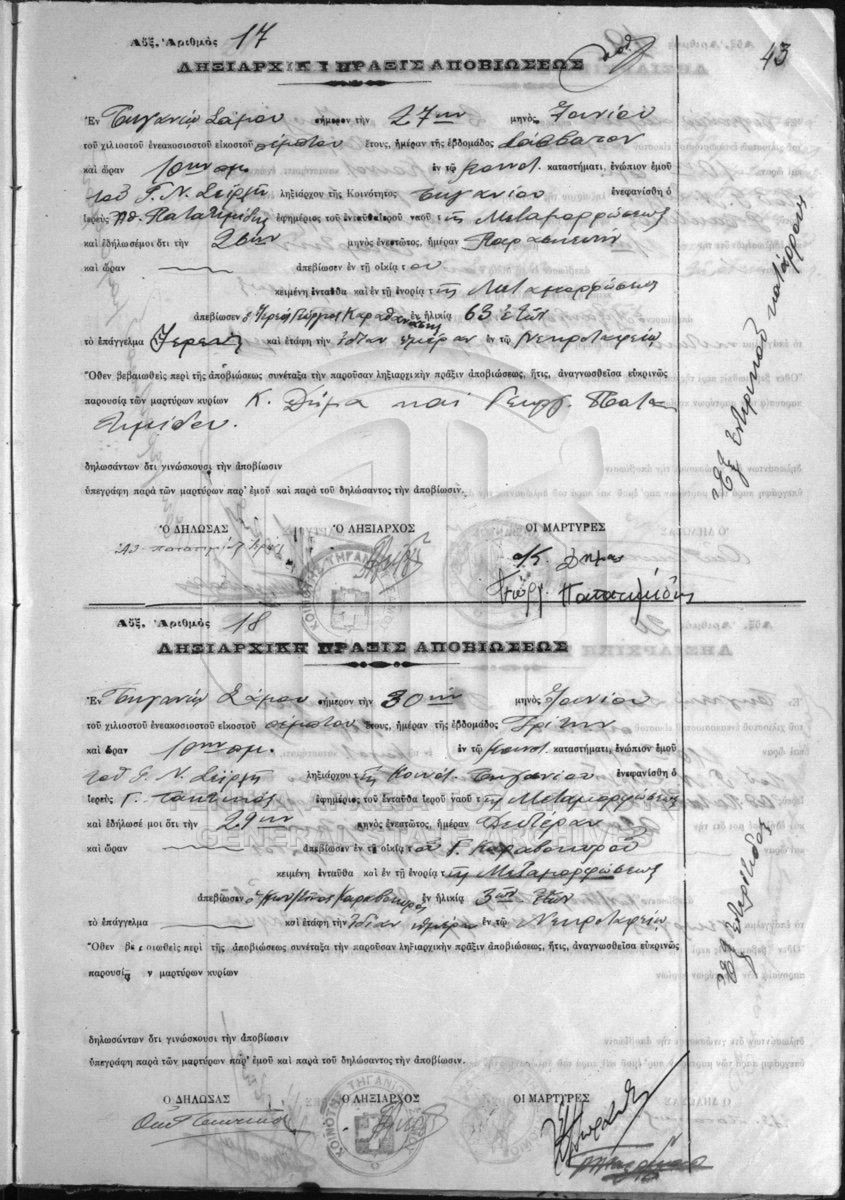 43
Αὔξ. Ἀριθμὸς 17
ΛΗΞΙΑΡΧΙΚΗ ΠΡΑΞΙΣ ΑΠΟΒΙΩΣΕΩΣ
Ἐν Τηγανίῳ Σάμου σήμερον τὴν 27ην μηνὸς Ἰουνίου
τοῦ χιλιοστοῦ ἐνεακοσιοστοῦ εἰκοστοῦ πέμπτου ἔτους, ἡμέραν τῆς ἑβδομάδος Σάββατον
καὶ ὥραν 10ην πμ. ἐν τῷ Κοινοτ. καταστήματι, ἐνώπιον ἐμοῦ
τοῦ Γ. Ν. ληξιάρχου τῆς Κοινότητος Τηγανίου ἐνεφανίσθη ὁ
Ἱερεὺς ἐφημέριος τοῦ ἐνταῦθα ἱεροῦ ναοῦ τῆς Μεταμορφώσεως
καὶ ἐδήλωσέ μοι ὅτι τὴν 26ην μηνὸς ἐνεστῶτος, ἡμέραν Παρασκευὴν
καὶ ὥραν — ἀπεβίωσεν ἐν τῇ οἰκίᾳ του
κειμένῃ ἐνταῦθα καὶ ἐν τῇ ἐνορίᾳ τῆς Μεταμορφώσεως
ἀπεβίωσεν ὁ Ἱερεὺς Γεώργιος ἐν ἡλικίᾳ 63 ἐτῶν
τὸ ἐπάγγελμα Ἱερεὺς καὶ ἐτάφη τὴν ἰδίαν ἡμέραν ἐν τῷ Νεκροταφείῳ
Ὅθεν βεβαιωθεὶς περὶ τῆς ἀποβιώσεως συνέταξα τὴν παροῦσαν ληξιαρχικὴν πρᾶξιν ἀποβιώσεως, ἥτις, ἀναγνωσθεῖσα εὐκρινῶς
παρουσίᾳ τῶν μαρτύρων κυρίων Κ. Δήμα καὶ Γεωργ. Παπα-
δηλωσάντων ὅτι γινώσκουσι τὴν ἀποβίωσιν
ὑπεγράφη παρὰ τῶν μαρτύρων παρ' ἐμοῦ καὶ παρὰ τοῦ δηλώσαντος τὴν ἀποβίωσιν.
Ὁ ΔΗΛΩΣΑΣ Ὁ ΛΗΞΙΑΡΧΟΣ ΟΙ ΜΑΡΤΥΡΕΣ
Κ. Δήμας
Γεώργ.
Ἐξ ἐντερικοῦ κατάρρου
Αὔξ. Ἀριθμὸς 18
ΛΗΞΙΑΡΧΙΚΗ ΠΡΑΞΙΣ ΑΠΟΒΙΩΣΕΩΣ
Ἐν Τηγανίῳ Σάμου σήμερον τὴν 30ην μηνὸς Ἰουνίου
τοῦ χιλιοστοῦ ἐνεακοσιοστοῦ εἰκοστοῦ πέμπτου ἔτους, ἡμέραν τῆς ἑβδομάδος Τρίτην
καὶ ὥραν 10ην πμ. ἐν τῷ Κοινοτ. καταστήματι, ἐνώπιον ἐμοῦ
τοῦ Γ. Ν. ληξιάρχου τῆς Κοινότ. Τηγανίου ἐνεφανίσθη ὁ
Ἱερεὺς Γ. ἐφημέριος τοῦ ἐνταῦθα ἱεροῦ ναοῦ τῆς Μεταμορφώσεως
καὶ ἐδήλωσέ μοι ὅτι τὴν 29ην μηνὸς ἐνεστῶτος, ἡμέραν Δευτέραν
καὶ ὥραν — ἀπεβίωσεν ἐν τῇ οἰκίᾳ τοῦ Γ.
κειμένῃ ἐνταῦθα καὶ ἐν τῇ ἐνορίᾳ τῆς Μεταμορφώσεως
ἀπεβίωσεν ὁ ἐν ἡλικίᾳ ἐτῶν
τὸ ἐπάγγελμα — καὶ ἐτάφη τὴν ἰδίαν ἡμέραν ἐν τῷ Νεκροταφείῳ
Ὅθεν βεβαιωθεὶς περὶ τῆς ἀποβιώσεως συνέταξα τὴν παροῦσαν ληξιαρχικὴν πρᾶξιν ἀποβιώσεως, ἥτις, ἀναγνωσθεῖσα εὐκρινῶς
παρουσίᾳ τῶν μαρτύρων κυρίων
δηλωσάντων ὅτι γινώσκουσι τὴν ἀποβίωσιν
ὑπεγράφη παρὰ τῶν μαρτύρων παρ' ἐμοῦ καὶ παρὰ τοῦ δηλώσαντος τὴν ἀποβίωσιν.
Ὁ ΔΗΛΩΣΑΣ Ὁ ΛΗΞΙΑΡΧΟΣ ΟΙ ΜΑΡΤΥΡΕΣ
Ἐξ ἐντερίτιδος